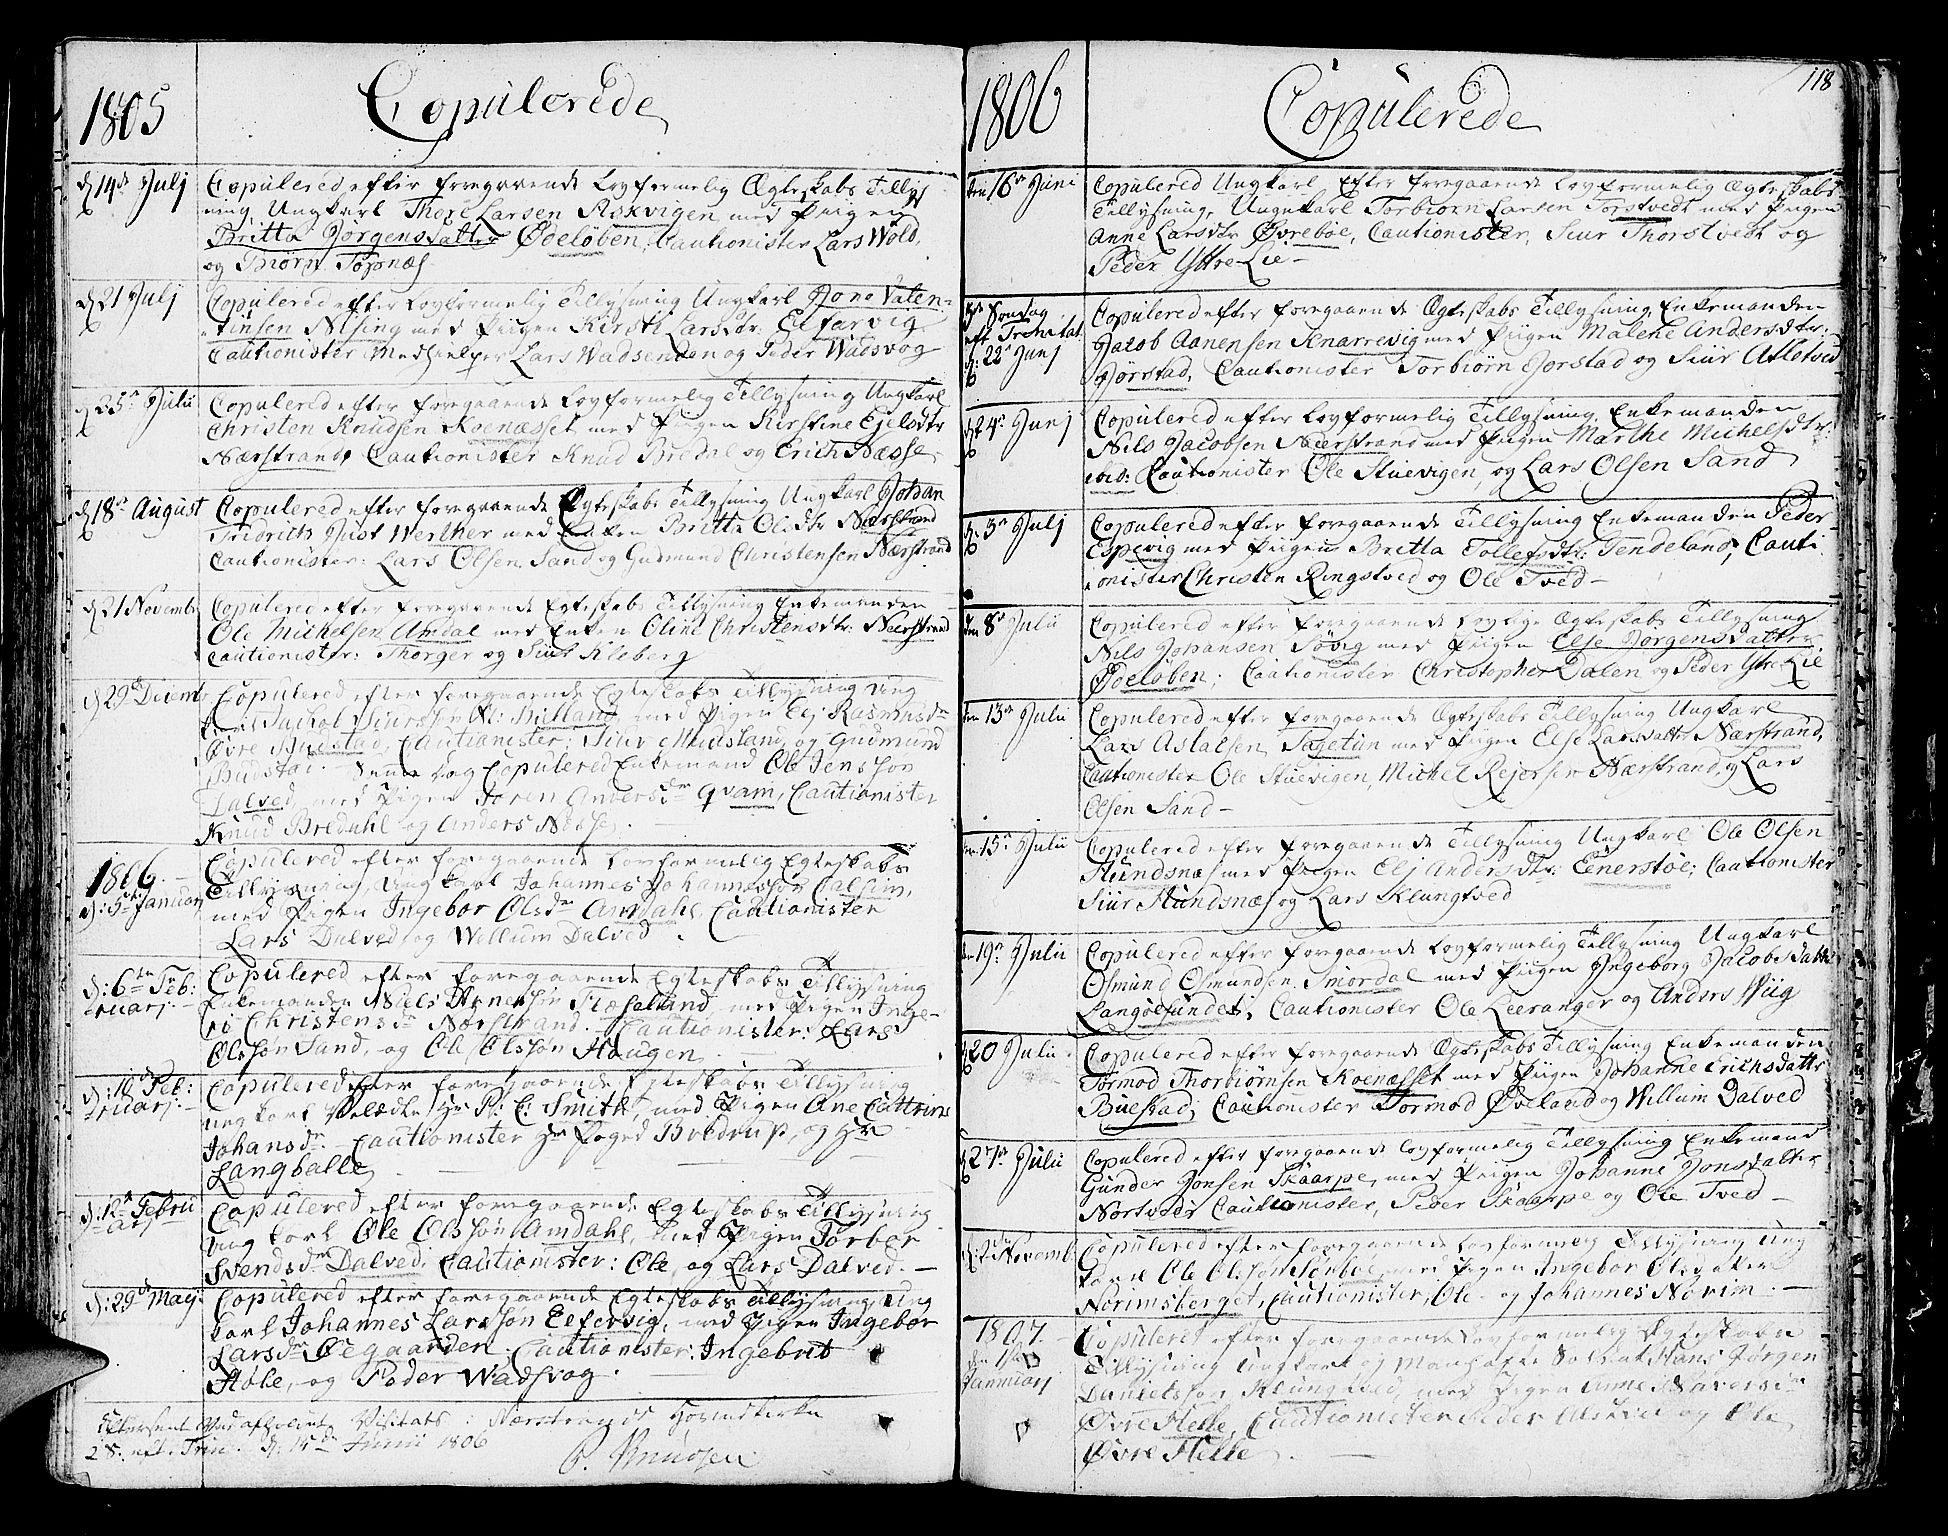 1805
Copulerede
d 14de Julj
Copulered efter foregaaende Lovformelig Ægteskabs Tillys
ning Ungkarl Thore Larsen Askvigen med Piigen
Britta Jørgensdatter Ødeløben, Cautionister Lars Wold,
og Biørn Toonæs
d 21 Julj
Copulered efter Lovformelig Tillysning Ungkarl Jono Valen-
tinsen Nising med Piigen Kirsti Larsdtr: Elfarvig
Cautionister Medhielper Lars Wadsenden og Peder Wadsvog
d 25de Julii
Copulered efter foregaaende Lovformelig Tillysning Ungkarl
Christen Knudsen Koenæsset med Piigen Kirstine Ejelsdtr
Nærstrand, Cautionister Knud Bredal og Erich Næsse
d 18de August
Copulered efter foregaaende Ægteskabs Tillysning Ungkarl Johan
Fridrich Just Werther med Enken Britte Olsdtr Nærstrand
Cautionister: Lars Olsen Sand og Gudmund Christensen Nærstrand
d 21 Novembr
Copulered efter foregaaende Egteskabs Tillysning Enkemanden
Ole Michelsen Amdal med Enken Oline Christensdtr: Nærstrand
Cautionister: Thorger og Siur Kleberg
d 29de Decemb
Copulered efter foregaaende Egteskabs Tillysning Ung
karl Siurssøn Birkland, med Pigen Elj Rasmusdr
Øvre Buestad, Cautionister: Siur Medsland og Gudmund
Buestad. Samme Dag Copulered Enkemand Ole Jenssøn
Dalved, med Pigen Joren Andersdr Qvam, Cautionister
Knud Bredahl og Anders Næsse.
1806.
d: 5te Januarj
Copulered efter foregaaende Lovformelig Egteskabs
Tillysning, Ungkarl Johannes Johannessøn
med Pigen Ingebor Olsdr Amdahl, Cautionister
Lars Dalved og Willum Dalved.
d: 6te Feb:
ruarj.
Copulered efter foregaaende Egteskabs Tillysning
Enkemanden Niels Arnessøn Flæseland, med Pigen Inge-
ri Christensdr Nærstrand. Cautionister: Lars
Olssøn Sand, og Ole Olssøn Haugen.
d: 10de Feb:
ruarj.
Copulered efter foregaaende Egteskabs Tillysning
ungkarl Velædle Hr P: C: Smith, med Pigen Ane Cattrine
Johansdr. Cautionister Hr Foged Bredrup, og Hr
Langballe.
d: 12te Febru
arj
Copulered efter foregaaende Egteskabs Tillysning
ung karl Ole Olssøn Amdahl, med Pigen Torbor
Svendsdr Dalved. Cautionister: Ole, og Lars Dalved.
d: 29de Maj:
Copulered efter foregaaende Egteskabs Tillysning, ung
karl Johannes Larssøn Elfervig, med Pigen Ingebor
Larsdr Øegaarden. Cautionister: Ingebrit
Hole, og Peder Wadsvog.
Eftersent Ved afholdent Visitats i Nærstrands Hovedkirke
2 S: eft: Trin: d: 15de Junii 1806
P. Knudsen
1806
Copulerede
118
den 16de Juni
Copulered Ungkarl Efter foregaaende Lovformelig Ægteskabs
Tillysning, Ungkarl Torbiørn Larsen Torstvedt med Piigen
Anne Larsdtr Øvrebøe, Cautionister, Siur Thorstvedt og
Peder Yttre Lie
3de Søndag
eft Trenitat.
d: 22de Junj
Copulered efter foregaaende Ægteskabs Tillysning Enkemanden
Jacob Aanensen Knarrevig med Piigen Malene Andersdtr:
Jørstad, Cautionister Torbiørn Jørstad og Siur Alletved
d 24de Junj
Copulered efter Lovformelig Tillysning Enkemanden
Nils Jacobsen Nærstrand med Piigen Marthe Michelsdtr:
ibid: Cautionister Ole Stuevigen, og Lars Olsen Sand
d: 3de Julj
Copulered efter foregaaende Tillysning Enkemanden Peder
Espevig med Piigen Britta Tollefsdtr: Tendeland, Cauti
onister Christen Ringstved og Ole Tved
den 8de Julii
Copulered efter foregaaende Lovlige Ægteskabs Tillysning
Nils Johansen Søvig med Piigen Else Jørgensdatter
Ødeløben; Cautionister Christopher Dalen og Peder Ytre Lie
den 13de Julii
Copulered efter foregaaende Ægteskabs Tillysning Ungkarl
Lars Aslaksen Tagetun med Piigen Else Larsdatter Nærstrand,
Cautionister Ole Stuevigen, Michel Rejersen Nærstrand, og Lars
Olsen Sand
den 15de Julii
Copulered efter foregaaende Tillysning Ungkarl Ole Olsen
Hundsnæs med Piigen Elj Andersdtr: Enerstøe; Cautionister
Siur Hundsnæs og Lars Klungtved
den 19de Julii
Copulered efter foregaaende Lovformelig Tillysning Ungkarl
Osmund Osmundsen Smørdal med Piigen Ingeborg Jacobsdatter
Langøesundet; Cautionister Ole Leeranger og Anders Wiig
d 20 Julii
Copulered efter foregaaende Ægteskabs Tillysning Enkemanden
Tormod Thorbiørnsen Koenæsset med Piigen Johanne Erichsdattr
Buestad; Cautionister Tormod Øveland og Willum Dalved
d 27de Julii
Copulered efter foregaaende Lovformelig Tillysning Enkemand
Gunder Jonsen Skaarpe, med Piigen Johanne Jonsdatter
Nortveds Cautionister, Peder Skaarpe og Ole Tved
d: 2de Novemb
Copulered efter foregaaende Lovformelig Tillysning Ung
karl Ole Olssøn Sørbøe, med Pigen Ingebor Olsdatter
Norimsberget, Cautionister, Ole og Johannes Norim.
1807.
Januarj
Copuleret efter foregaaende Lovformelig Egteskabs
Tillysning Ungkarl og Mansatte Soldat Hans Jørgen
Danielssøn Klungtvad, med Pigen Anne Siversdr
Øvre Helle, Cautionister Peder Alsvei og Ole
Øvre Helle.